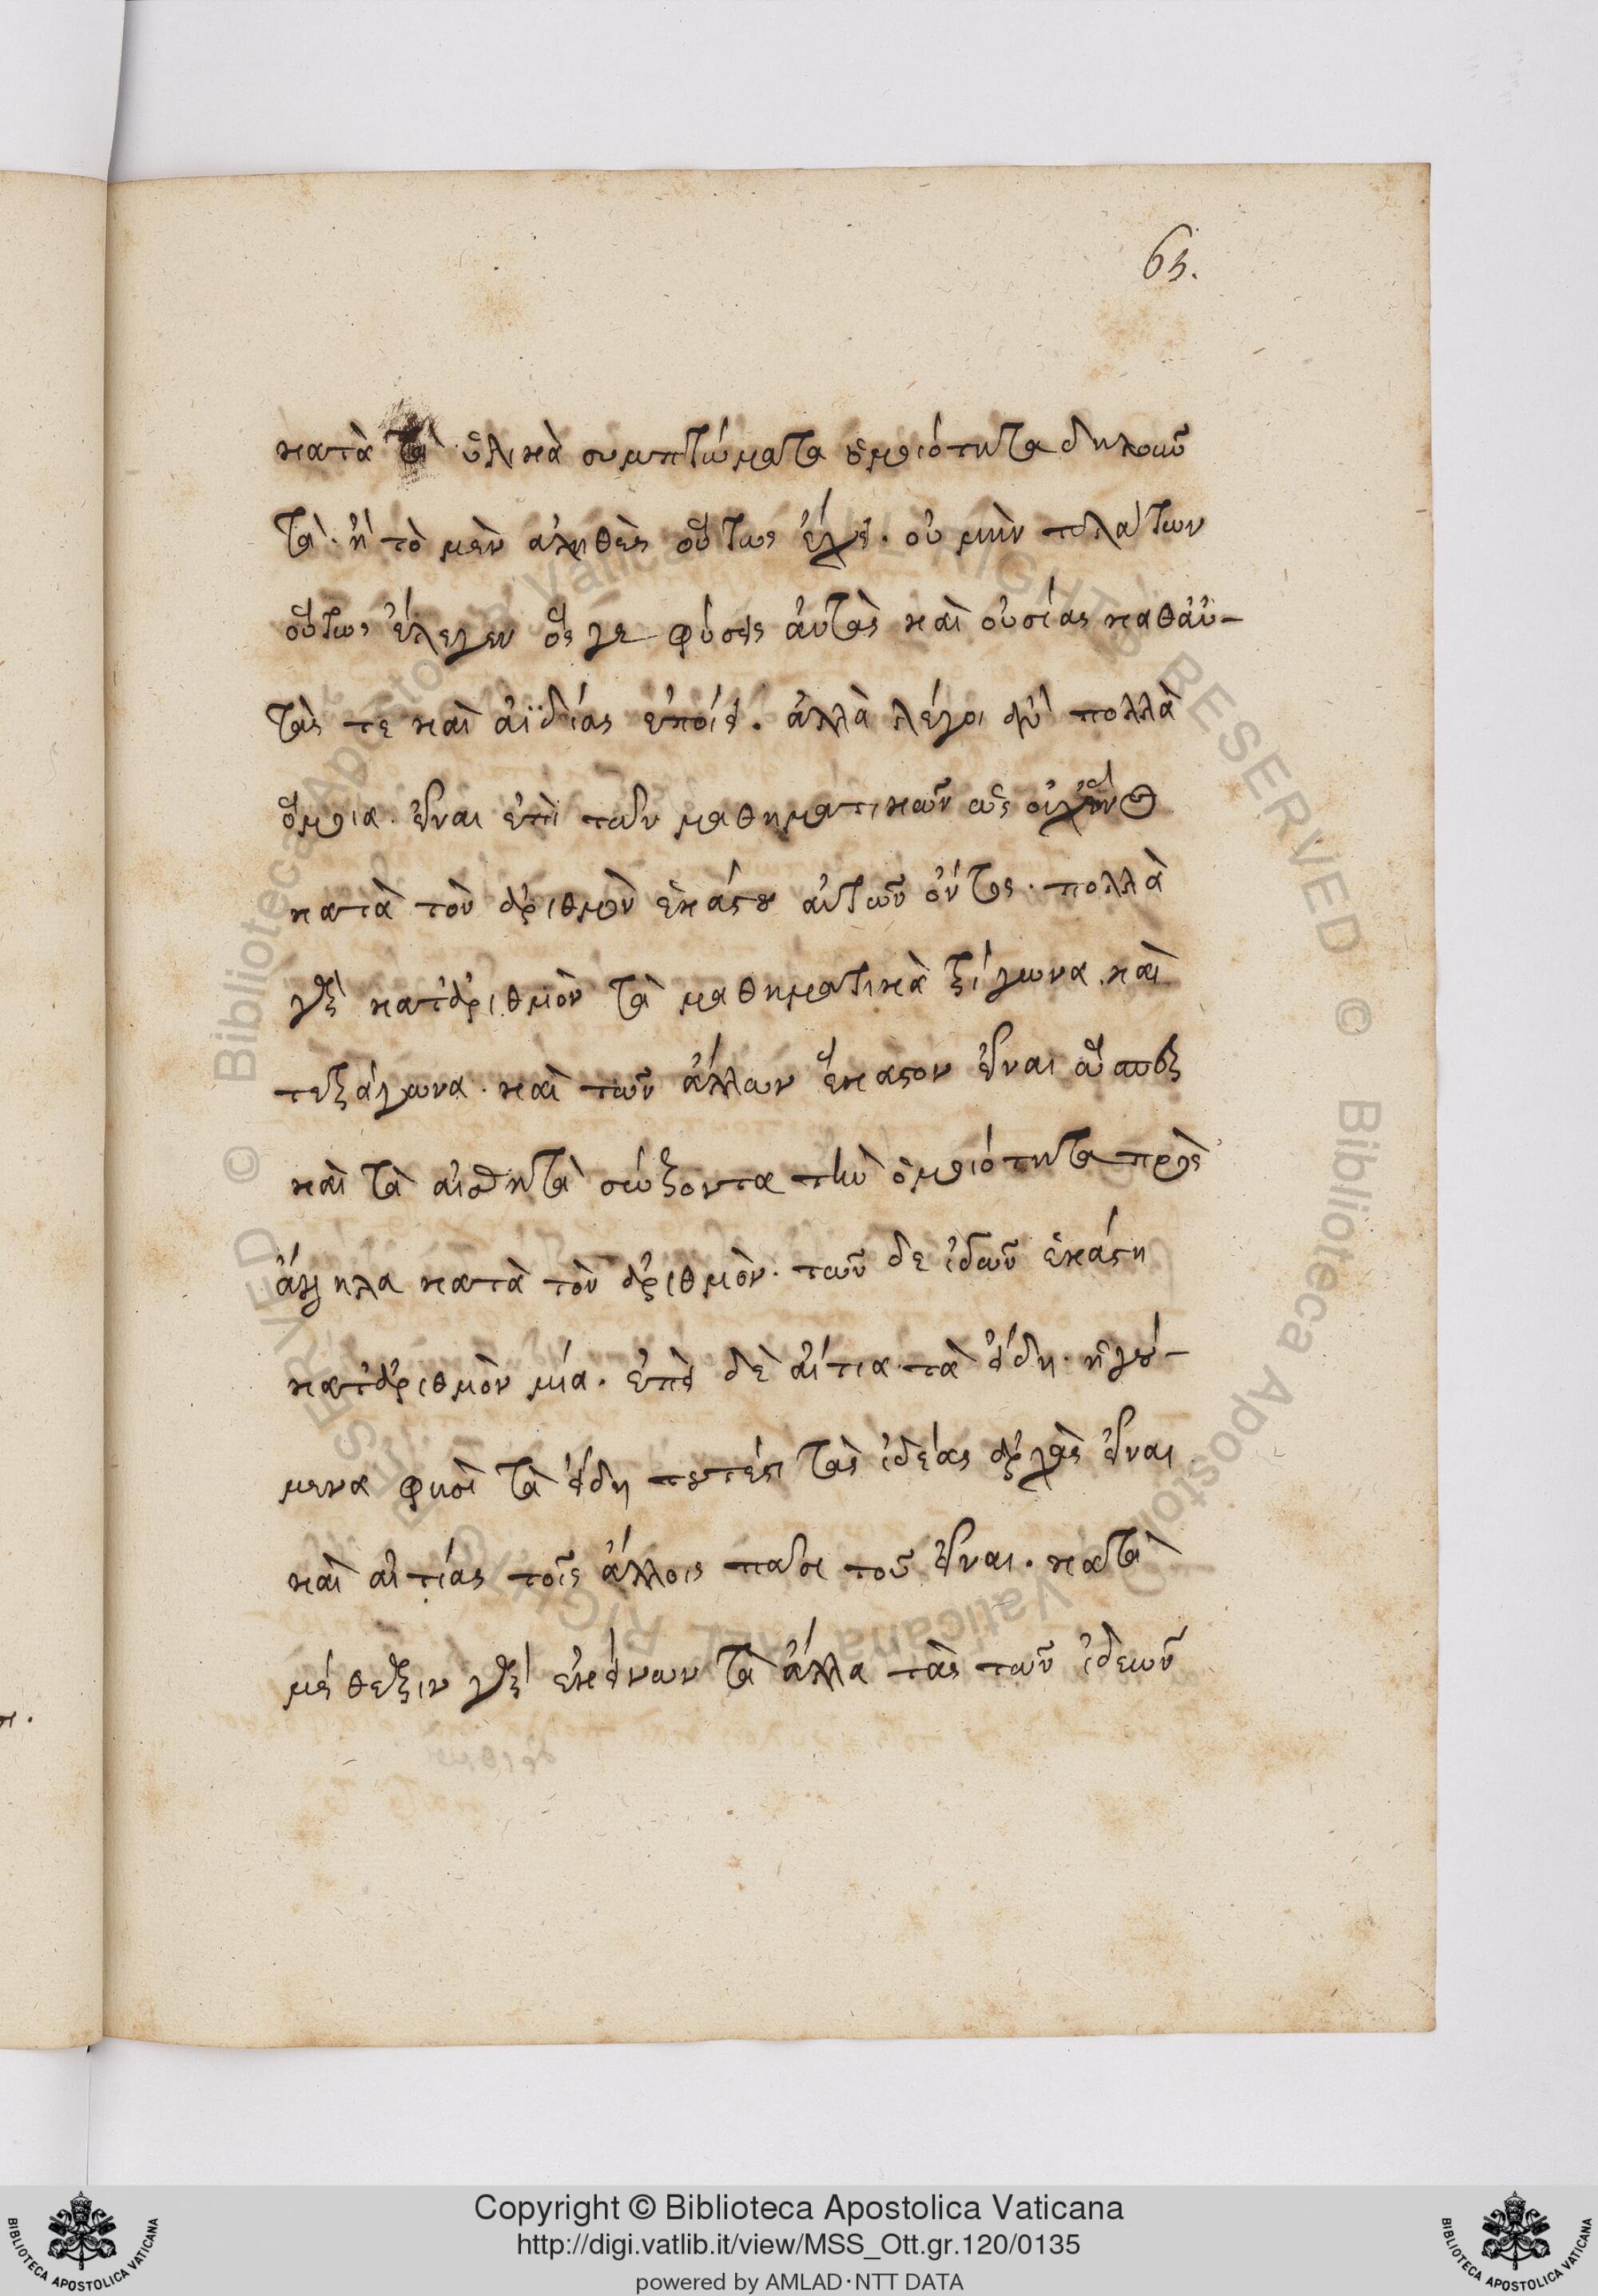 63.
κατὰ τὰ ὑλικὰ συμπτώματα ὁμοιότητα δηλοῦν
τα. ἢ τὸ μὲν ἀληθὲς οὕτως ἔχει. οὐ μὴν πλάτων
οὕτως ἔλεγεν ὅς γε φύσεις αὐτὰς καὶ οὐσίας καθ' αὑ-
τάς τε καὶ ἀϊδίας ἐποίει. ἀλλὰ λέγοι ἂν πολλὰ
ὅμοια εἶναι ἐπὶ τῶν μαθηματικῶν ὡς οὐχ ἑνὸς
κατὰ τὸν ἀριθμὸν ἑκάστου αὐτῶν ὄντος. πολλὰ
γὰρ κατ' ἀριθμὸν τὰ μαθηματικὰ τρίγωνα. καὶ
τετράγωνα. καὶ τῶν ἄλλων ἕκαστον εἶναι ὥσπερ
καὶ τὰ αἰσθητὰ σώζοντα τὴν ὁμοιότητα πρὸς
ἄλληλα κατὰ τὸν ἀριθμὸν. τῶν δε ἰδεῶν ἑκάστη
κατ' ἀριθμὸν μία. ἐπεὶ δὲ αἴτια τὰ εἴδη. ἡγού-
μενα φησὶ τὰ εἴδη τουτέστι τὰς ἰδέας ἀρχὰς εἶναι
καὶ αἰτίας τοῖς ἄλλοις πᾶσι τοῦ εἶναι. κατὰ
μέθεξιν γὰρ ἐκείνων τὰ ἄλλα τὰς τῶν ἰδεῶν
Copyright © Biblioteca Apostolica Vaticana
http://digi.vatlib.it/view/MSS_Ott.gr.120/0135
powered by AMLAD·NTT DATA